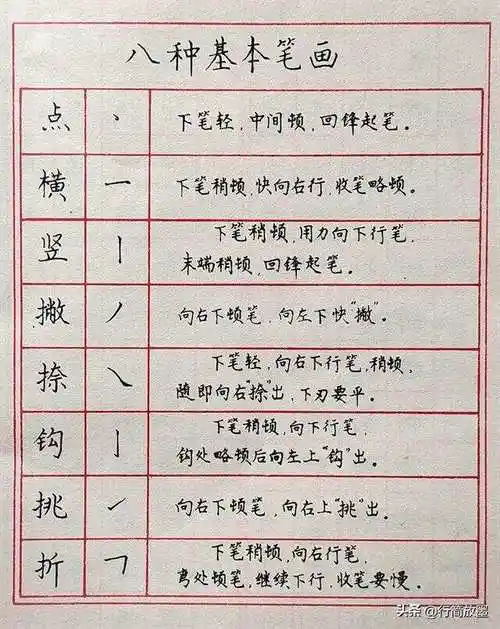 八种基本笔画
点 丶 下笔轻，中间顿，回锋起笔。
横 一 下笔稍顿，快向右行，收笔略顿。
竖 丨 下笔稍顿，用力向下行笔，
末端稍顿，回锋起笔。
撇 丿 向右下顿笔，向左下快“撇”。
捺 ㇏ 下笔轻，向右下行笔，稍顿，
随即向右“捺”出，下刃要平。
钩 亅 下笔稍顿，向下行笔，
钩处略顿后向左上“钩”出。
挑 ㇀ 向右下顿笔，向右上“挑”出。
折 𠃍 下笔稍顿，向右行笔，
弯处顿笔，继续下行，收笔要慢。
头条 @行简放墨